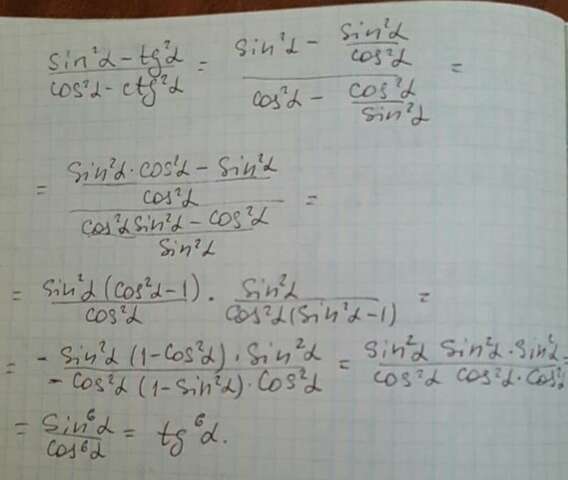 (sin²α − tg²α)/(cos²α − ctg²α) = (sin²α − sin²α/cos²α)/(cos²α − cos²α/sin²α) =
= ((sin²α · cos²α − sin²α)/cos²α)/((cos²α sin²α − cos²α)/sin²α) =
= (sin²α (cos²α − 1))/cos²α · sin²α/(cos²α (sin²α − 1)) =
= (− sin²α (1 − cos²α) · sin²α)/(− cos²α (1 − sin²α) · cos²α) = (sin²α sin²α · sin²α)/(cos²α cos²α · cos²α) =
= sin⁶α/cos⁶α = tg⁶α.